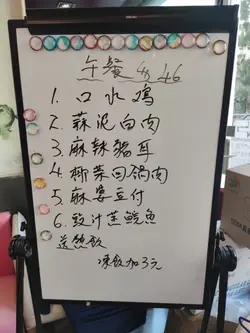 午餐 $46
1. 口水鸡
2. 蒜泥白肉
3. 麻辣猪耳
4. 椰菜回锅肉
5. 麻婆豆付
6. 豉汁蒸鲩鱼
送热饮
冻饮加3元